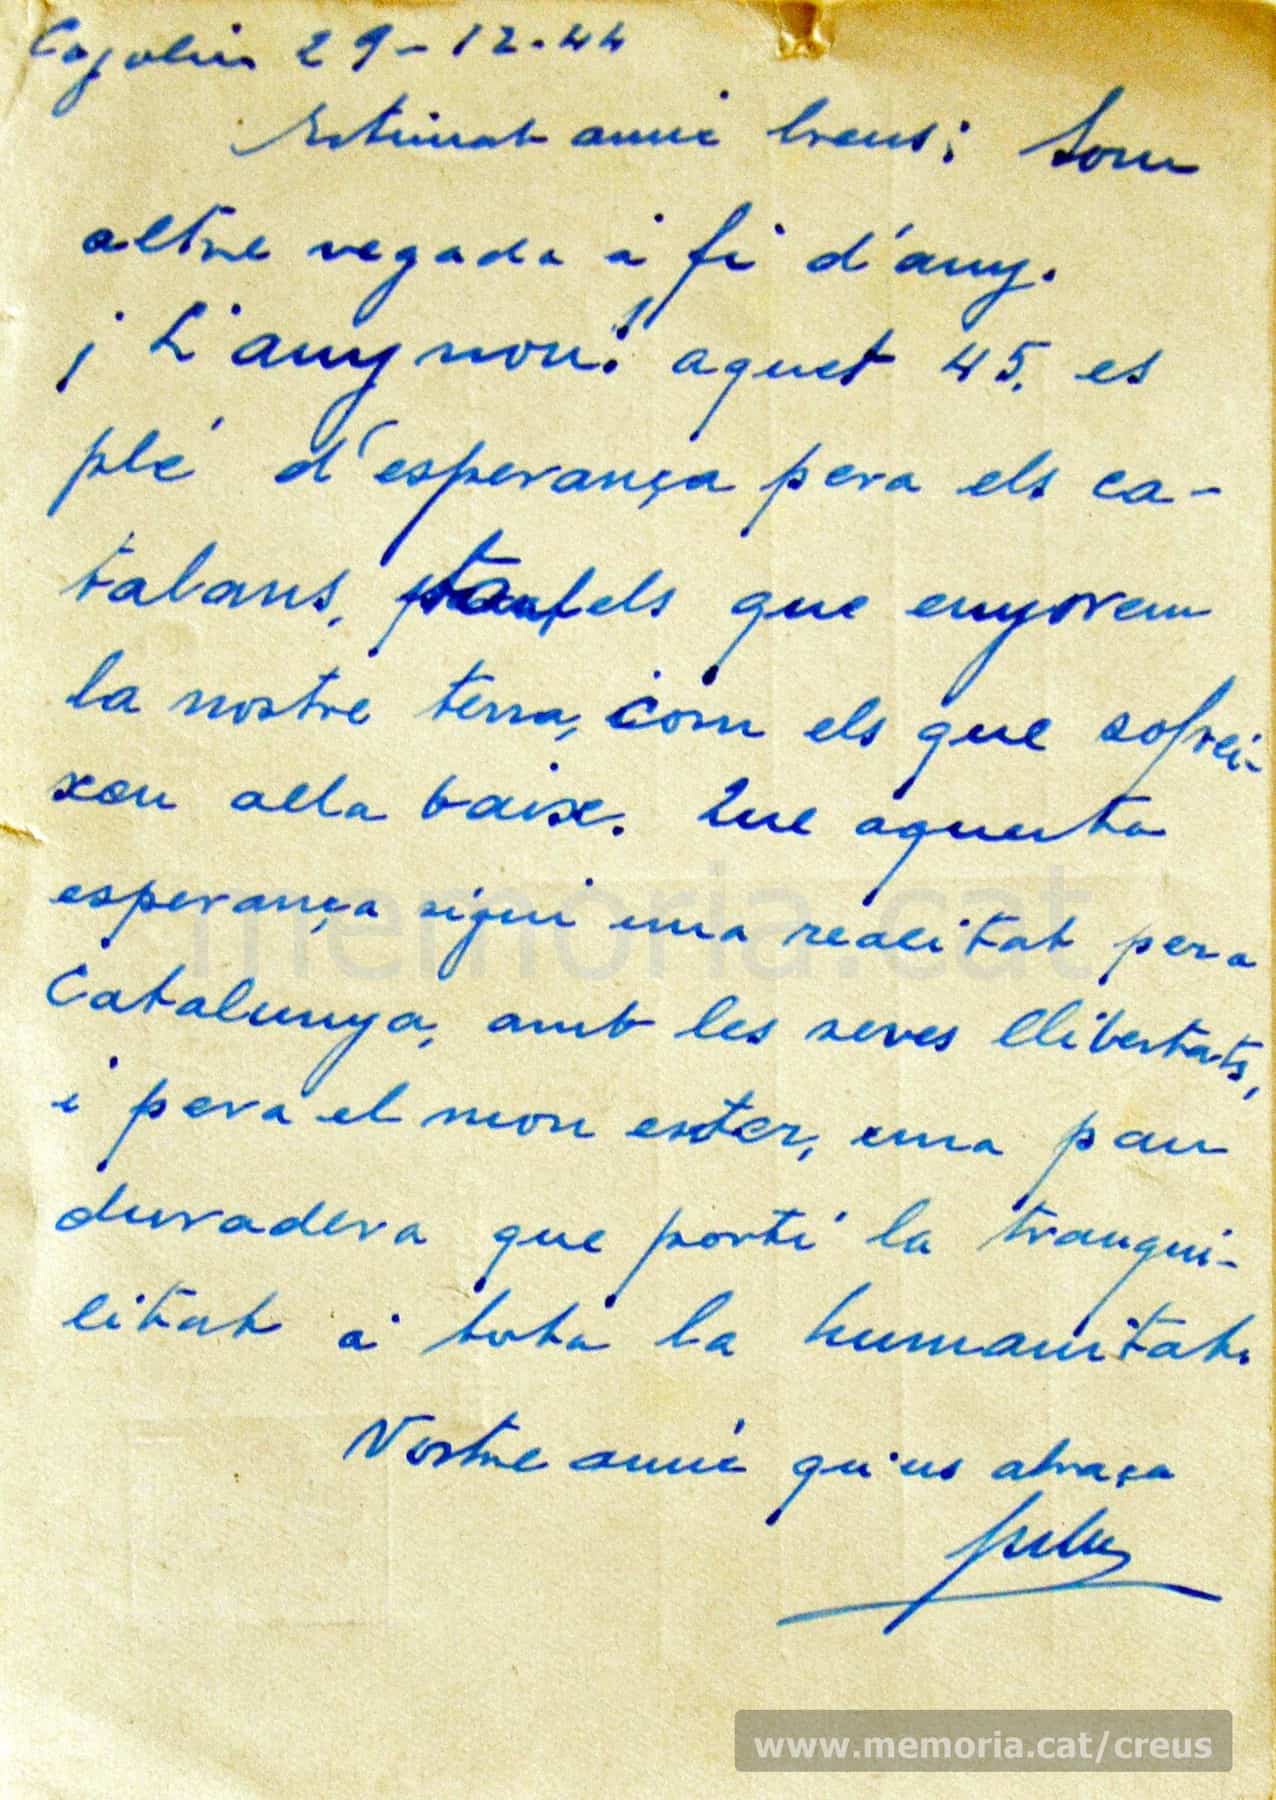 Cogolin 29-12-44
Estimat amic Creus: Som
altre vegada a fi d'any.
¡L'any nou! aquet 45. es
plé d'esperança pera els ca-
talans, tant els que enyorem
la nostre terra, com els que sofrei-
xen alla baixe. Que aquesta
esperança sigui una realitat pera
Catalunya, amb les seves llibertats,
i pera el mon enter, una pau
duradera que porti la tranqui-
litat a tota la humanitat.
Vostre amic qu'us abraça
memoria.cat
www.memoria.cat/creus